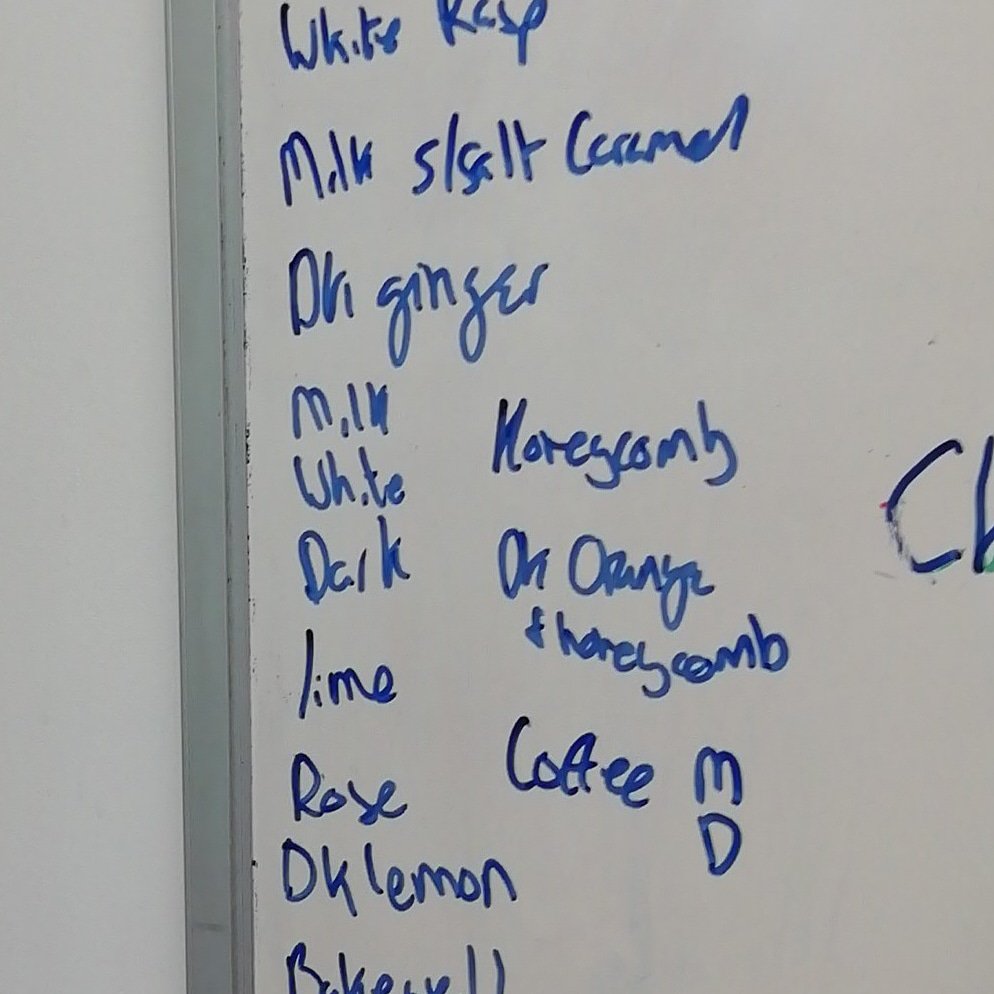 White Rasp
Milk s/salt Caramel
Dk ginger
Milk
White
Dark
Honeycomb
lime
Dk Orange
& honeycomb
Rose
Coffee M
D
DK lemon
Bakewell